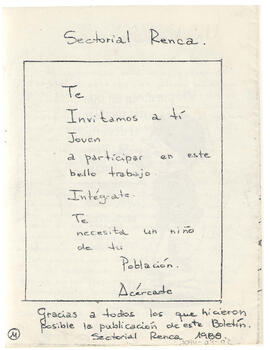 Sectorial Renca.
Te
Invitamos a tí
Joven
a participar en este
bello trabajo.
Intégrate.
Te
necesita un niño
de tu
Población.
Acércate
Gracias a todos los que hicieron
posible la publicación de este Boletín.
Sectorial Renca 1988.
M